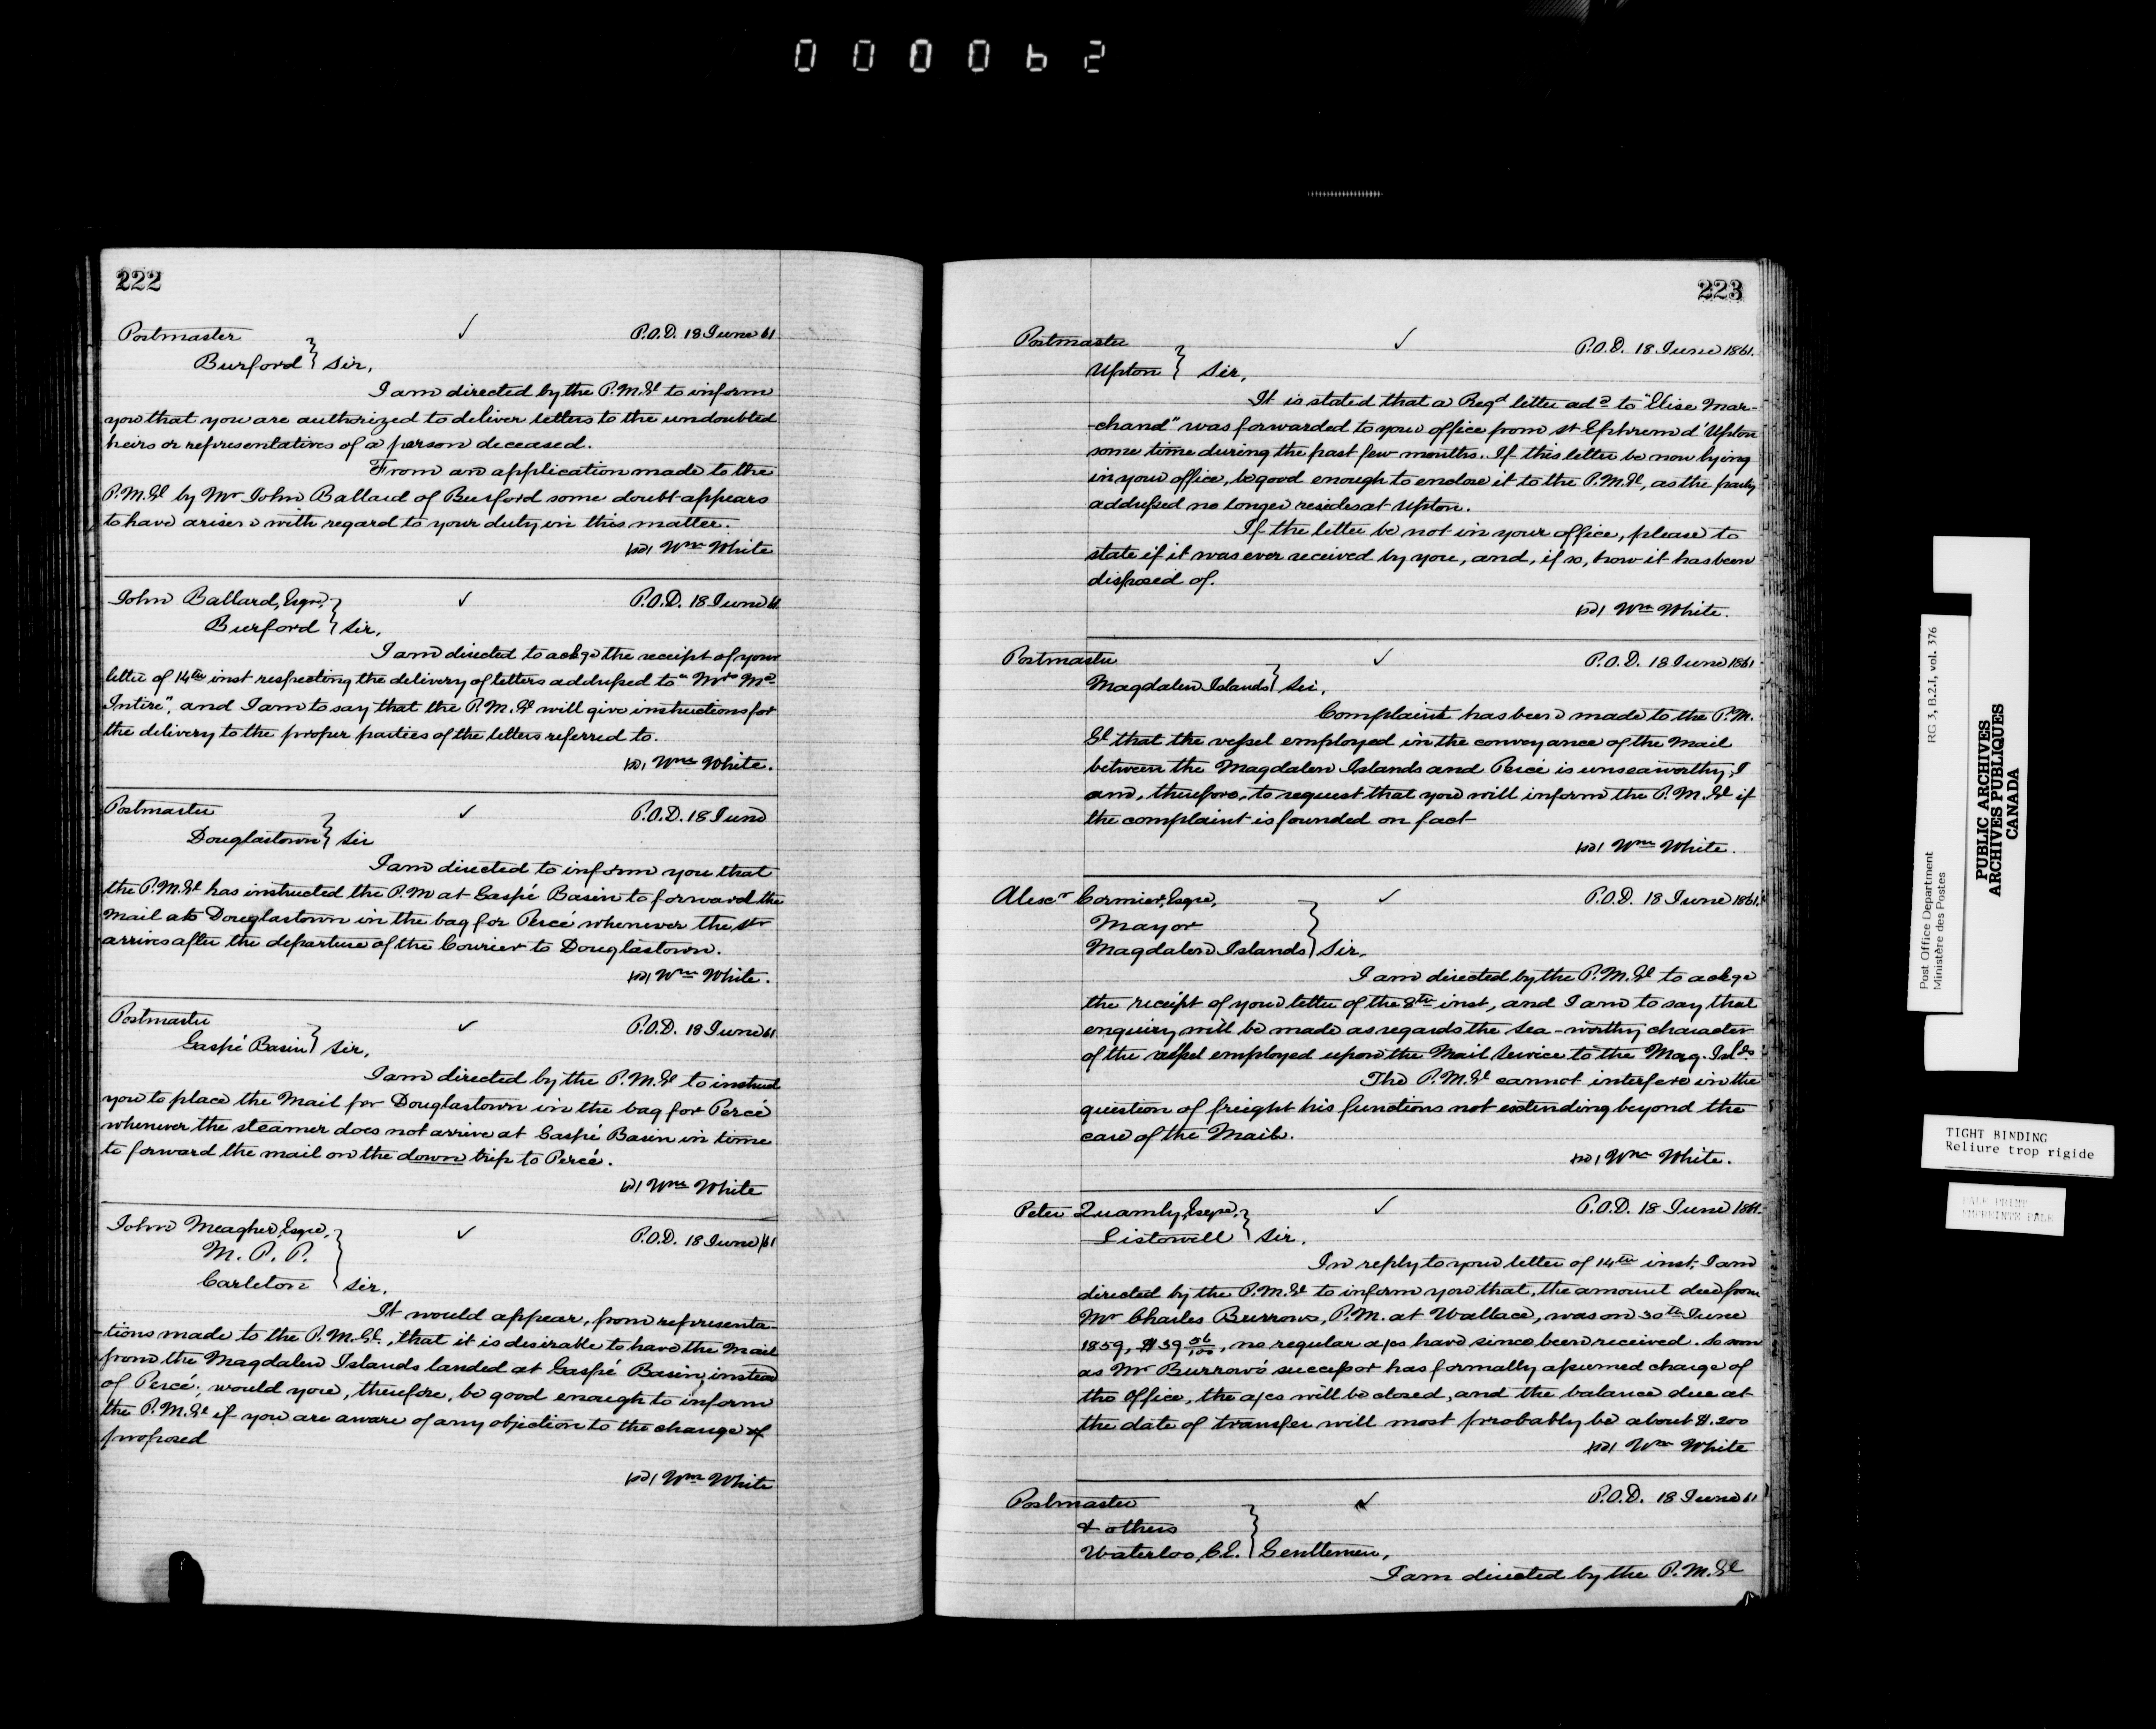 000062
222
Postmaster ✓ P.O.D. 18 June 61
Burford } Sir,
I am directed by the P.M.Gl to inform
you that you are authorized to deliver letters to the undoubted
heirs or representatives of a person deceased.
From an application made to the
P.M.Gl by Mr John Ballard of Burford some doubt appears
to have arisen with regard to your duty in this matter.
Wm White
John Ballard, Esqre, ✓ P.O.D. 18 June 61
Burford } Sir,
I am directed to ackge the receipt of your
letter of 14th inst respecting the delivery of letters addressed to "Mrs Mc
Intire", and I am to say that the P.M.Gl will give instructions for
the delivery to the proper parties of the letters referred to.
Wm White.
Postmaster ✓ P.O.D. 18 June
Douglastown } Sir
I am directed to inform you that
the P.M.Gl has instructed the P.M at Gaspé Basin to forward the
Mail at Douglastown in the bag for Percé whenever the str
arrives after the departure of the Courier to Douglastown.
Wm White.
Postmaster ✓ P.O.D. 18 June 61
Gaspé Basin } Sir,
I am directed by the P.M.Gl to instruct
you to place the Mail for Douglastown in the bag for Percé
whenever the steamer does not arrive at Gaspé Basin in time
to forward the mail on the down trip to Percé.
Wm White
John Meagher, Esqre, ✓ P.O.D. 18 June/61
M. P. P.
Carleton } Sir,
It would appear, from representa-
tions made to the P.M.Gl, that it is desirable to have the Mail
from the Magdalen Islands landed at Gaspé Basin, instead
of Percé; would you, therefore, be good enough to inform
the P.M.Gl if you are aware of any objection to the change
proposed
Wm White
223
Postmaster ✓ P.O.D. 18 June 1861.
Upton } Sir,
It is stated that a Regd letter add to "Elise Mar-
-chand" was forwarded to your office from St Ephrem d'Upton
some time during the past few months. If this letter be now lying
in your office, be good enough to enclose it to the P.M.Gl, as the party
addressed no longer resides at Upton.
If the letter be not in your office, please to
state if it was ever received by you, and, if so, how it has been
disposed of.
Wm White.
Postmaster ✓ P.O.D. 18 June 1861
Magdalen Islands } Sir,
Complaint has been made to the P.M.
Gl that the vessel employed in the conveyance of the Mail
between the Magdalen Islands and Percé is unseaworthy, I
am, therefore, to request that you will inform the P.M.Gl if
the complaint is founded on fact
Wm White.
Alexr Cormier, Esqre, ✓ P.O.D. 18 June 1861.
Mayor
Magdalen Islands } Sir,
I am directed by the P.M.Gl to ackge
the receipt of your letter of the 8th inst, and I am to say that
enquiry will be made as regards the sea-worthy character
of the vessel employed upon the Mail Service to the Mag. Islds
The P.M.Gl cannot interfere in the
question of freight his functions not extending beyond the
care of the Mails.
Wm White.
Peter Quamby, Esqre, ✓ P.O.D. 18 June 1861.
Listowell } Sir,
In reply to your letter of 14th inst. I am
directed by the P.M.Gl to inform you that, the amount due from
Mr Charles Burrows, P.M. at Wallace, was on 30th June
1859, $39 56/100, no regular a/cs have since been received. So soon
as Mr Burrows' successor has formally assumed charge of
the Office, the a/cs will be closed, and the balance due at
the date of transfer will most probably be about $.200
Wm White
Postmaster ✓ P.O.D. 18 June 61
& others
Waterloo, C.E. } Gentlemen,
I am directed by the P.M.Gl
Post Office Department
Ministère des Postes
RG 3, B.2.I, vol. 376
PUBLIC ARCHIVES
ARCHIVES PUBLIQUES
CANADA
TIGHT BINDING
Reliure trop rigide